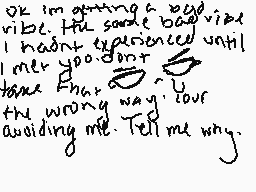 ok im getting a bad
vibe. the same bad vibe
I hadnt experienced until
I met you. dont
take that
the wrong way. your
avoiding me. Tell me why.